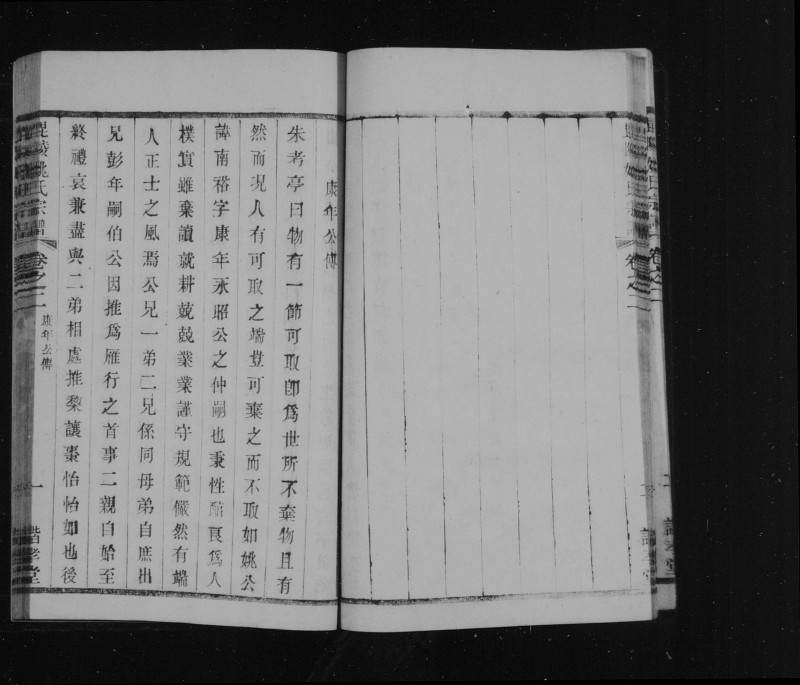 康年公傳
朱考亭曰物有一節可取卽爲世所不棄物且有
然而况人有可取之端豈可棄之而不取如姚公
諱南裕字康年永昭公之仲嗣也秉性醕良爲人
樸實雖棄讀就耕兢兢業業謹守規範儼然有端
人正士之風焉公兄一弟二兄係同母弟自庶出
兄彭年嗣伯公因推爲雁行之首事二親自始至
終禮哀兼盡與二弟相處推棃讓棗怡怡如也後
毘陵姚氏宗譜 卷之二 康年公傳 一 諧孝堂